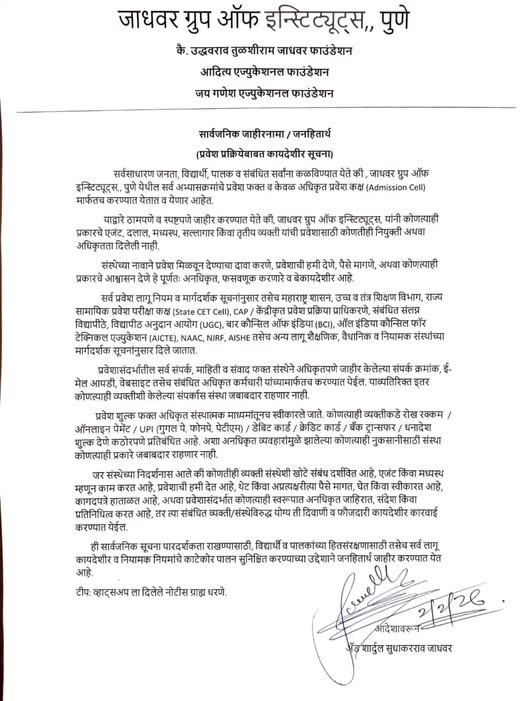 जाधवर ग्रुप ऑफ इन्स्टिट्यूट्स,, पुणे
कै. उद्धवराव तुळशीराम जाधवर फाउंडेशन
आदित्य एज्युकेशनल फाउंडेशन
जय गणेश एज्युकेशनल फाउंडेशन
सार्वजनिक जाहीरनामा / जनहितार्थ
(प्रवेश प्रक्रियेबाबत कायदेशीर सूचना)
सर्वसाधारण जनता, विद्यार्थी, पालक व संबंधित सर्वांना कळविण्यात येते की , जाधवर ग्रुप ऑफ
इन्स्टिट्यूट्स,, पुणे येथील सर्व अभ्यासक्रमांचे प्रवेश फक्त व केवळ अधिकृत प्रवेश कक्ष (Admission Cell)
मार्फतच करण्यात येतात व येणार आहेत.
याद्वारे ठामपणे व स्पष्टपणे जाहीर करण्यात येते की, जाधवर ग्रुप ऑफ इन्स्टिट्यूट्स, यांनी कोणत्याही
प्रकारचे एजंट, दलाल, मध्यस्थ, सल्लागार किंवा तृतीय व्यक्ती यांची प्रवेशासाठी कोणतीही नियुक्ती अथवा
अधिकृतता दिलेली नाही.
संस्थेच्या नावाने प्रवेश मिळवून देण्याचा दावा करणे, प्रवेशाची हमी देणे, पैसे मागणे, अथवा कोणत्याही
प्रकारचे आश्वासन देणे हे पूर्णतः अनधिकृत, फसवणूक करणारे व बेकायदेशीर आहे.
सर्व प्रवेश लागू नियम व मार्गदर्शक सूचनांनुसार तसेच महाराष्ट्र शासन, उच्च व तंत्र शिक्षण विभाग, राज्य
सामायिक प्रवेश परीक्षा कक्ष (State CET Cell), CAP / केंद्रीकृत प्रवेश प्रक्रिया प्राधिकरणे, संबंधित संलग्न
विद्यापीठे, विद्यापीठ अनुदान आयोग (UGC), बार कौन्सिल ऑफ इंडिया (BCI), ऑल इंडिया कौन्सिल फॉर
टेक्निकल एज्युकेशन (AICTE), NAAC, NIRF, AISHE तसेच अन्य लागू शैक्षणिक, वैधानिक व नियामक संस्थांच्या
मार्गदर्शक सूचनांनुसार दिले जातात.
प्रवेशासंदर्भातील सर्व संपर्क, माहिती व संवाद फक्त संस्थेने अधिकृतपणे जाहीर केलेल्या संपर्क क्रमांक, ई-
मेल आयडी, वेबसाइट तसेच संबंधित अधिकृत कर्मचारी यांच्यामार्फतच करण्यात येईल. याव्यतिरिक्त इतर
कोणत्याही व्यक्तीशी केलेल्या संपर्कास संस्था जबाबदार राहणार नाही.
प्रवेश शुल्क फक्त अधिकृत संस्थात्मक माध्यमांतूनच स्वीकारले जाते. कोणत्याही व्यक्तीकडे रोख रक्कम /
ऑनलाइन पेमेंट / UPI (गुगल पे, फोनपे, पेटीएम) / डेबिट कार्ड / क्रेडिट कार्ड / बँक ट्रान्सफर / धनादेश
शुल्क देणे कठोरपणे प्रतिबंधित आहे. अशा अनधिकृत व्यवहारांमुळे झालेल्या कोणत्याही नुकसानीसाठी संस्था
कोणत्याही प्रकारे जबाबदार राहणार नाही.
जर संस्थेच्या निदर्शनास आले की कोणतीही व्यक्ती संस्थेशी खोटे संबंध दर्शवित आहे, एजंट किंवा मध्यस्थ
म्हणून काम करत आहे, प्रवेशाची हमी देत आहे, थेट किंवा अप्रत्यक्षरीत्या पैसे मागत, घेत किंवा स्वीकारत आहे,
कागदपत्रे हाताळत आहे, अथवा प्रवेशासंदर्भात कोणत्याही स्वरूपात अनधिकृत जाहिरात, संदेश किंवा
प्रतिनिधित्व करत आहे, तर त्या संबंधित व्यक्ती/संस्थेविरुद्ध योग्य ती दिवाणी व फौजदारी कायदेशीर कारवाई
करण्यात येईल.
ही सार्वजनिक सूचना पारदर्शकता राखण्यासाठी, विद्यार्थी व पालकांच्या हितसंरक्षणासाठी तसेच सर्व लागू
कायदेशीर व नियामक नियमांचे काटेकोर पालन सुनिश्चित करण्याच्या उद्देशाने जनहितार्थ जाहीर करण्यात येत
आहे.
टीप: व्हाट्सअप ला दिलेले नोटीस ग्राह्य धरणे.
2/2/26.
आदेशावरून
ॲड शार्दुल सुधाकरराव जाधवर